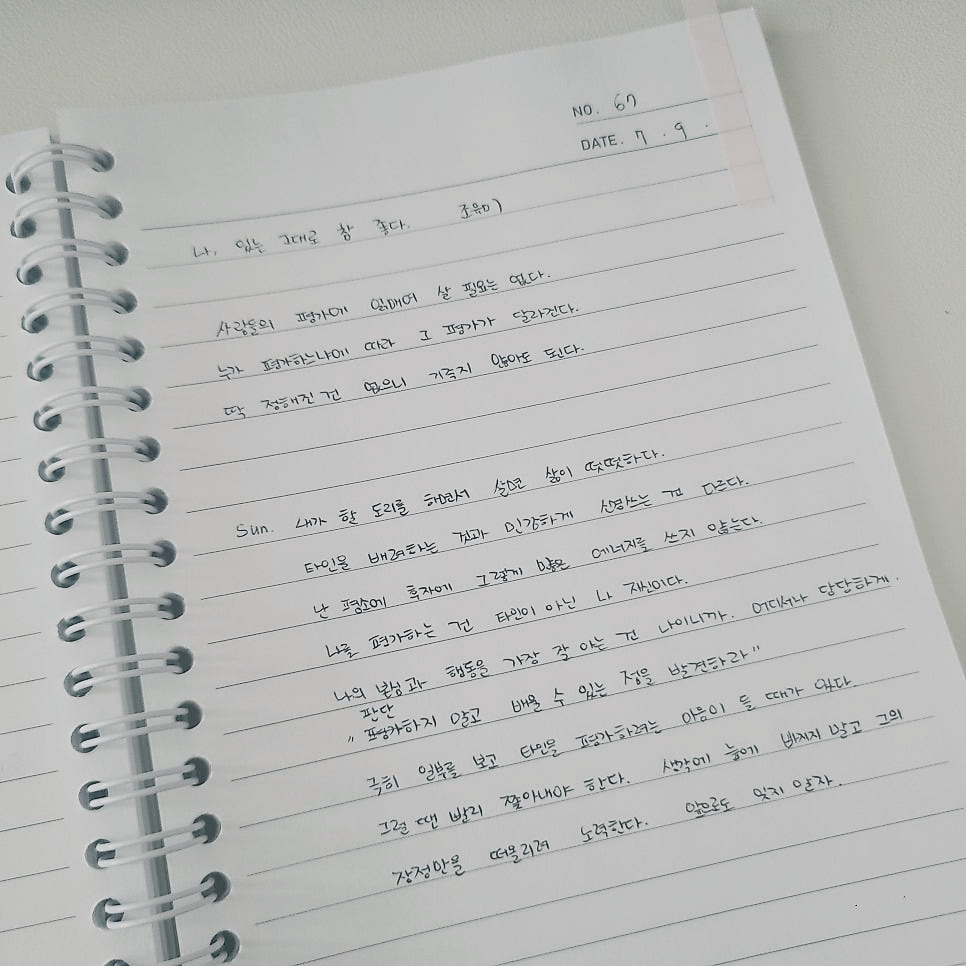 NO. 67
DATE. 7 . 9 .
나, 있는 그대로 참 좋다. 조유미
사람들의 평가에 얽매여 살 필요는 없다.
누가 평가하느냐에 따라 그 평가가 달라진다.
딱 정해진 건 없으니 기죽지 않아도 된다.
Sun. 내가 할 도리를 하면서 살면 삶이 떳떳하다.
타인을 배려하는 것과 민감하게 신경쓰는 건 다르다.
난 평소에 후자에 그렇게 많은 에너지를 쓰지 않는다.
나를 평가하는 건 타인이 아닌 나 자신이다.
나의 본성과 행동을 가장 잘 아는 건 나이니까. 어디서나 당당하게.
판단
"평가하지 말고 배울 수 있는 점을 발견하라"
극히 일부를 보고 타인을 평가하려는 마음이 들 때가 있다.
그럴 땐 빨리 쫓아내야 한다. 생각에 늪에 빠지지 말고 그의
장점만을 떠올리려 노력한다. 앞으로도 잊지 말자.